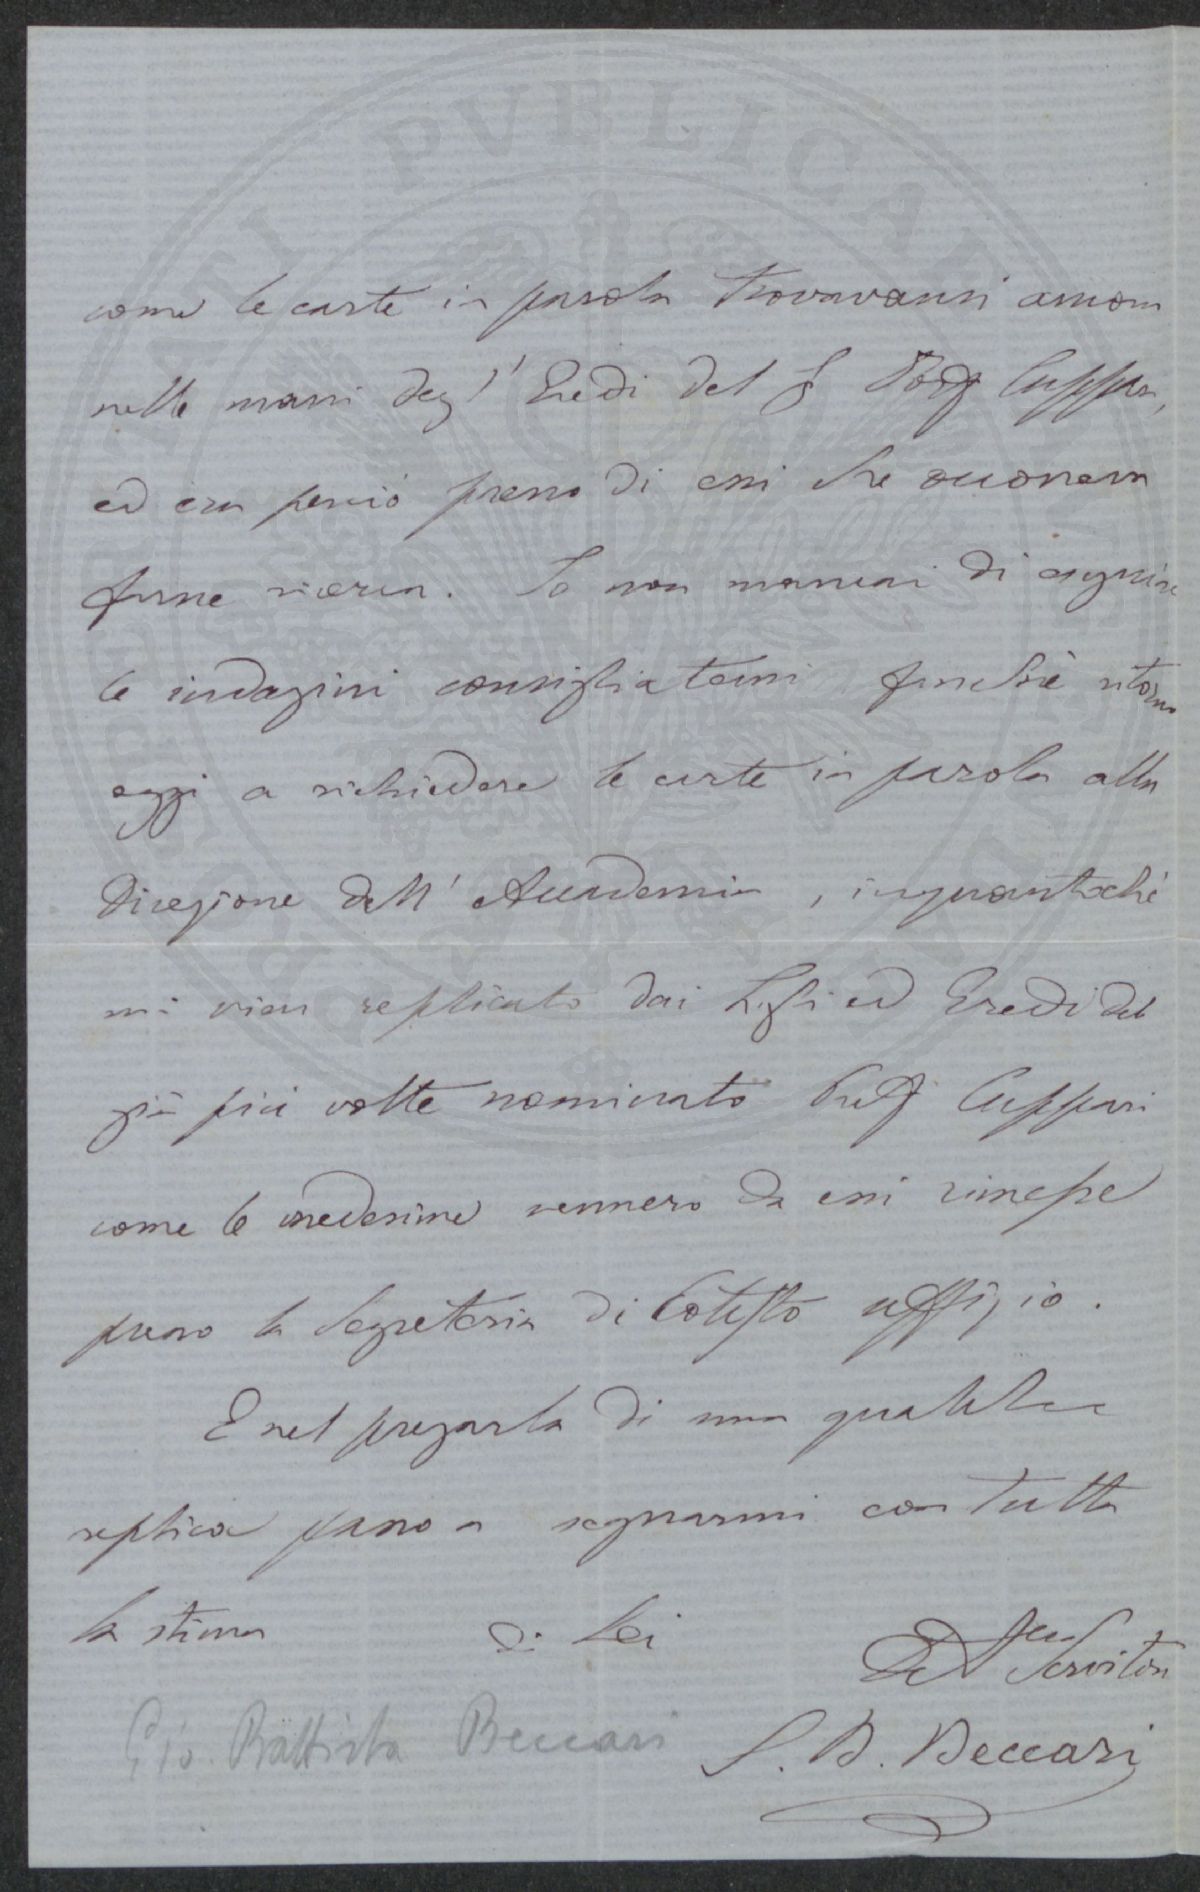 come le carte in parola trovavansi ancora
nelle mani degl' Eredi del S. Prof Cuppari,
ed era perciò presso di essi che occorreva
farne ricerca. Io non mancai di eseguire
le indagini consigliatemi finchè ritorno
oggi a richiedere le carte in parola alla
Direzione dell' Accademia, inquantochè
mi vien replicato dai Figli ed Eredi del
già più volte nominato Prof Cuppari
come le medesime vennero da essi rimesse
presso la Segreteria di Cotesto uffizio.
E nel pregarla di una qualche
replica passo a segnarmi con tutta
la stima di Lei
Servitore
G. B. Beccari
Gio. Battista Beccari
PUBLICAE